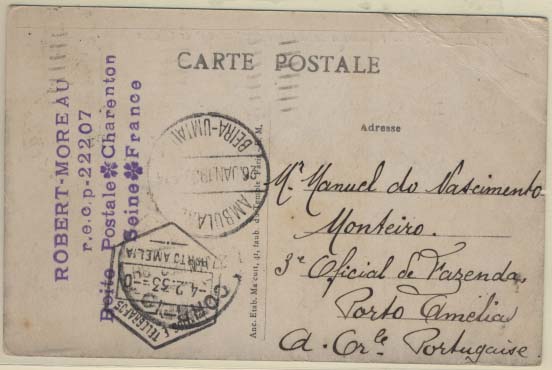 CARTE POSTALE
ROBERT-MOREAU
r.e.c.p-22207
Boite Postale Charenton
Seine France
AMBULA
BEIRA-UMTAI
26.JAN
CORREIO
TELEGRAFOS
-4.2.33
PORTO AMELIA
Adresse
Mr. Manuel do Nascimento
Monteiro.
3e Oficial de Fazenda,
Porto Amelia
A. Orle Portugaise
Anc. Etab. Malcuit,